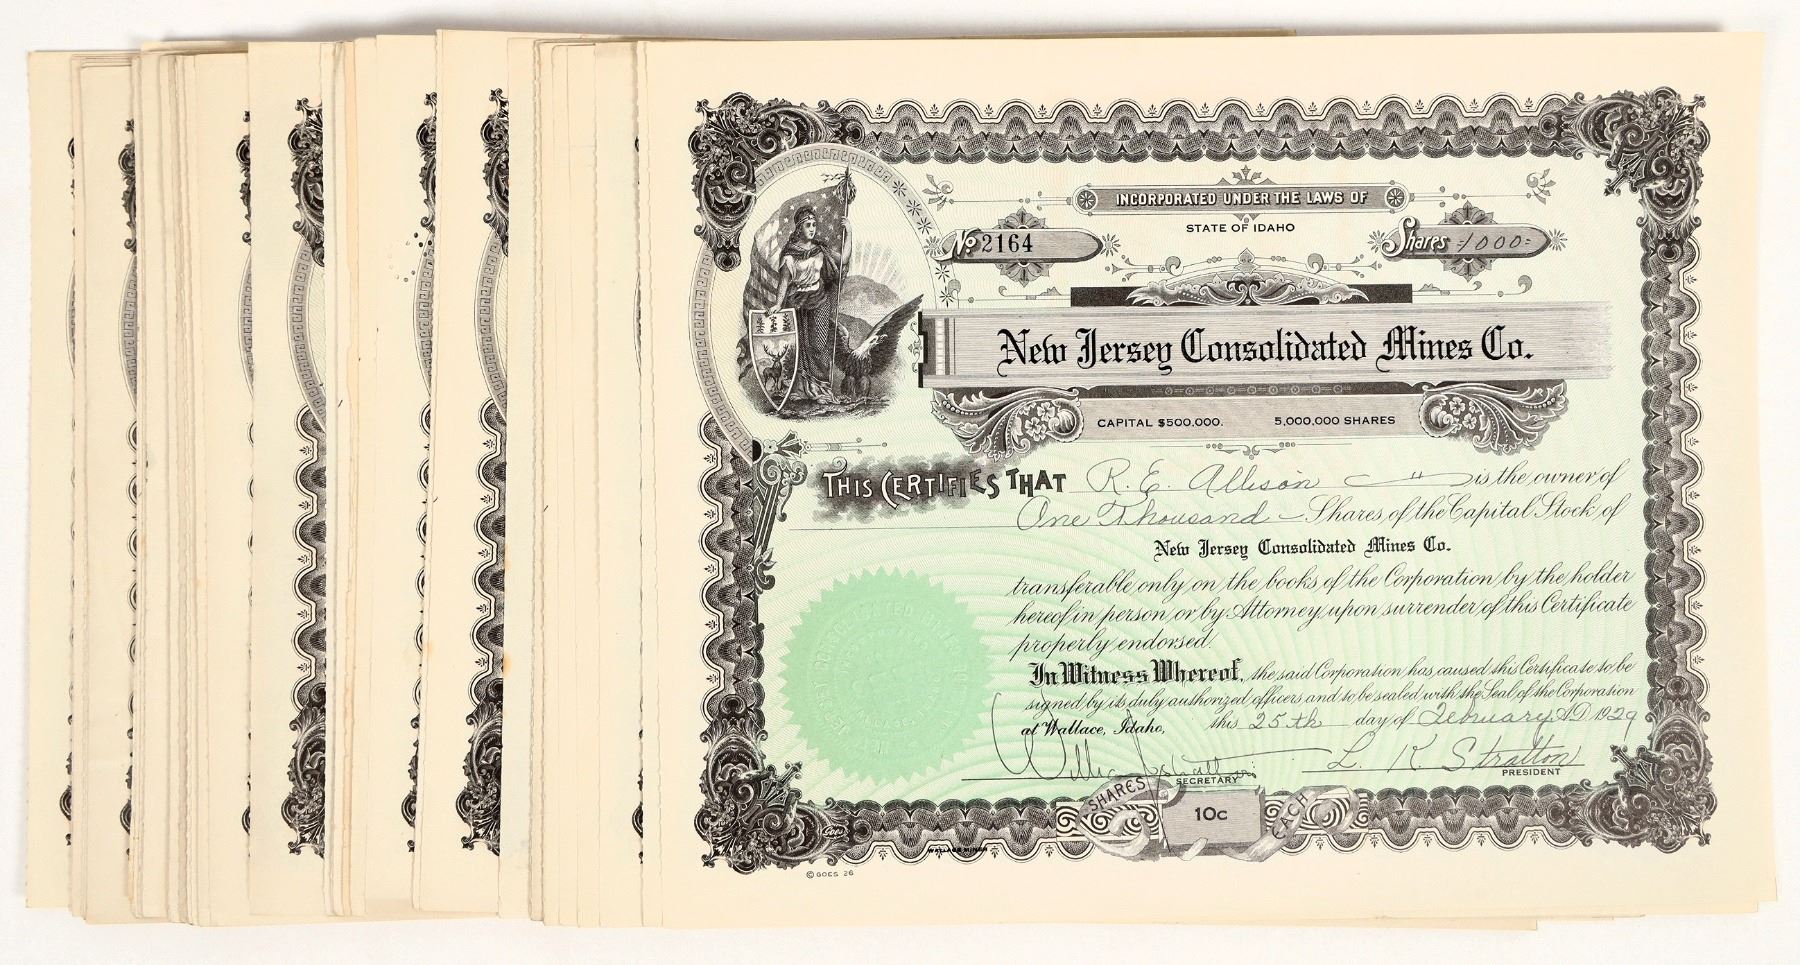 INCORPORATED UNDER THE LAWS OF
STATE OF IDAHO
No. 2164
Shares =1000=
New Jersey Consolidated Mines Co.
CAPITAL $500,000. 5,000,000 SHARES
THIS CERTIFIES THAT R. E. Allison is the owner of
One Thousand Shares of the Capital Stock of
New Jersey Consolidated Mines Co.
transferable only on the books of the Corporation by the holder
hereof in person or by Attorney upon surrender of this Certificate
properly endorsed.
In Witness Whereof, the said Corporation has caused this Certificate to be
signed by its duly authorized officers and to be sealed with the Seal of the Corporation
at Wallace, Idaho, this 25th day of February A.D. 1929
L. K. Stratton
SECRETARY PRESIDENT
SHARES 10c EACH
GOES
WALLACE MINER
© GOES 26